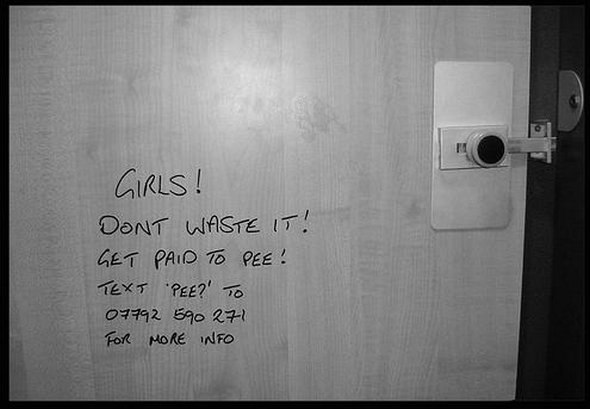 GIRLS!
DONT WASTE IT!
GET PAID TO PEE!
TEXT 'PEE?' TO
07792 590 271
FOR MORE INFO